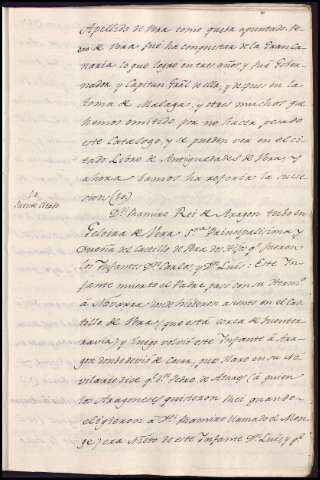 Apellido de Vera como queda apuntado. Pe-
de Vera fué ha conquistar de la Gran Ca-
naria lo que logro en tres años y fué Gober-
nador, y Capitan Gral de ella, y despues en la
toma de Malaga, y otros muchos que
hemos omitido por no hacer pesado
este Catalogo, y se pueden ver en el ci-
tado Libro de Antiguedades de Vera, y
ahora bamos ha referir la suce-
sion
Dn. Ramiro Rei de Aragon tubo en
Geloira de Vera Sra. Principalisima y
Dueña del Castillo de Vera dos Hijos qe. fueron
los Infantes Dn. Carlos, y Dn. Luis: Este In-
fante muerto el Padre, paso con su Herm.o
á Navarra, donde hicieron asiento en el Cas-
tillo de Vera (que está cerca de Fuenter-
ravia) y luego volvió este Infante á Ara-
gon donde
dice qe. Dn. Pedro de Atares (á quien
los Aragoneses quisieron Rei quando
eligieron á Dn. Ramiro llamado el Mon-
ge) era Nieto de este Infante Dn. Luis, y qe.